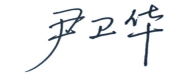 尹卫华